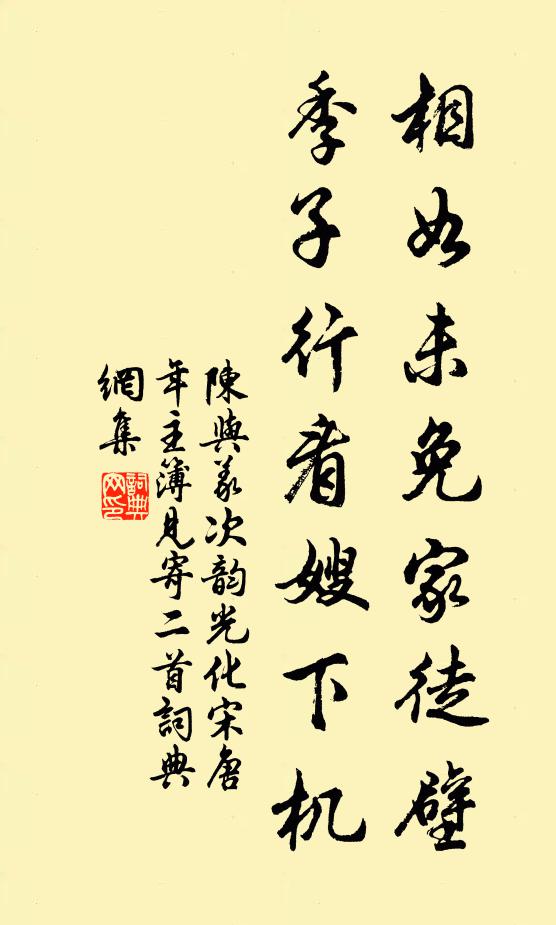 相如未免家徒壁
季子行看嫂下机
陳與義次韵光化宋唐
年主簿見寄二首詞典
網集
詞典网印